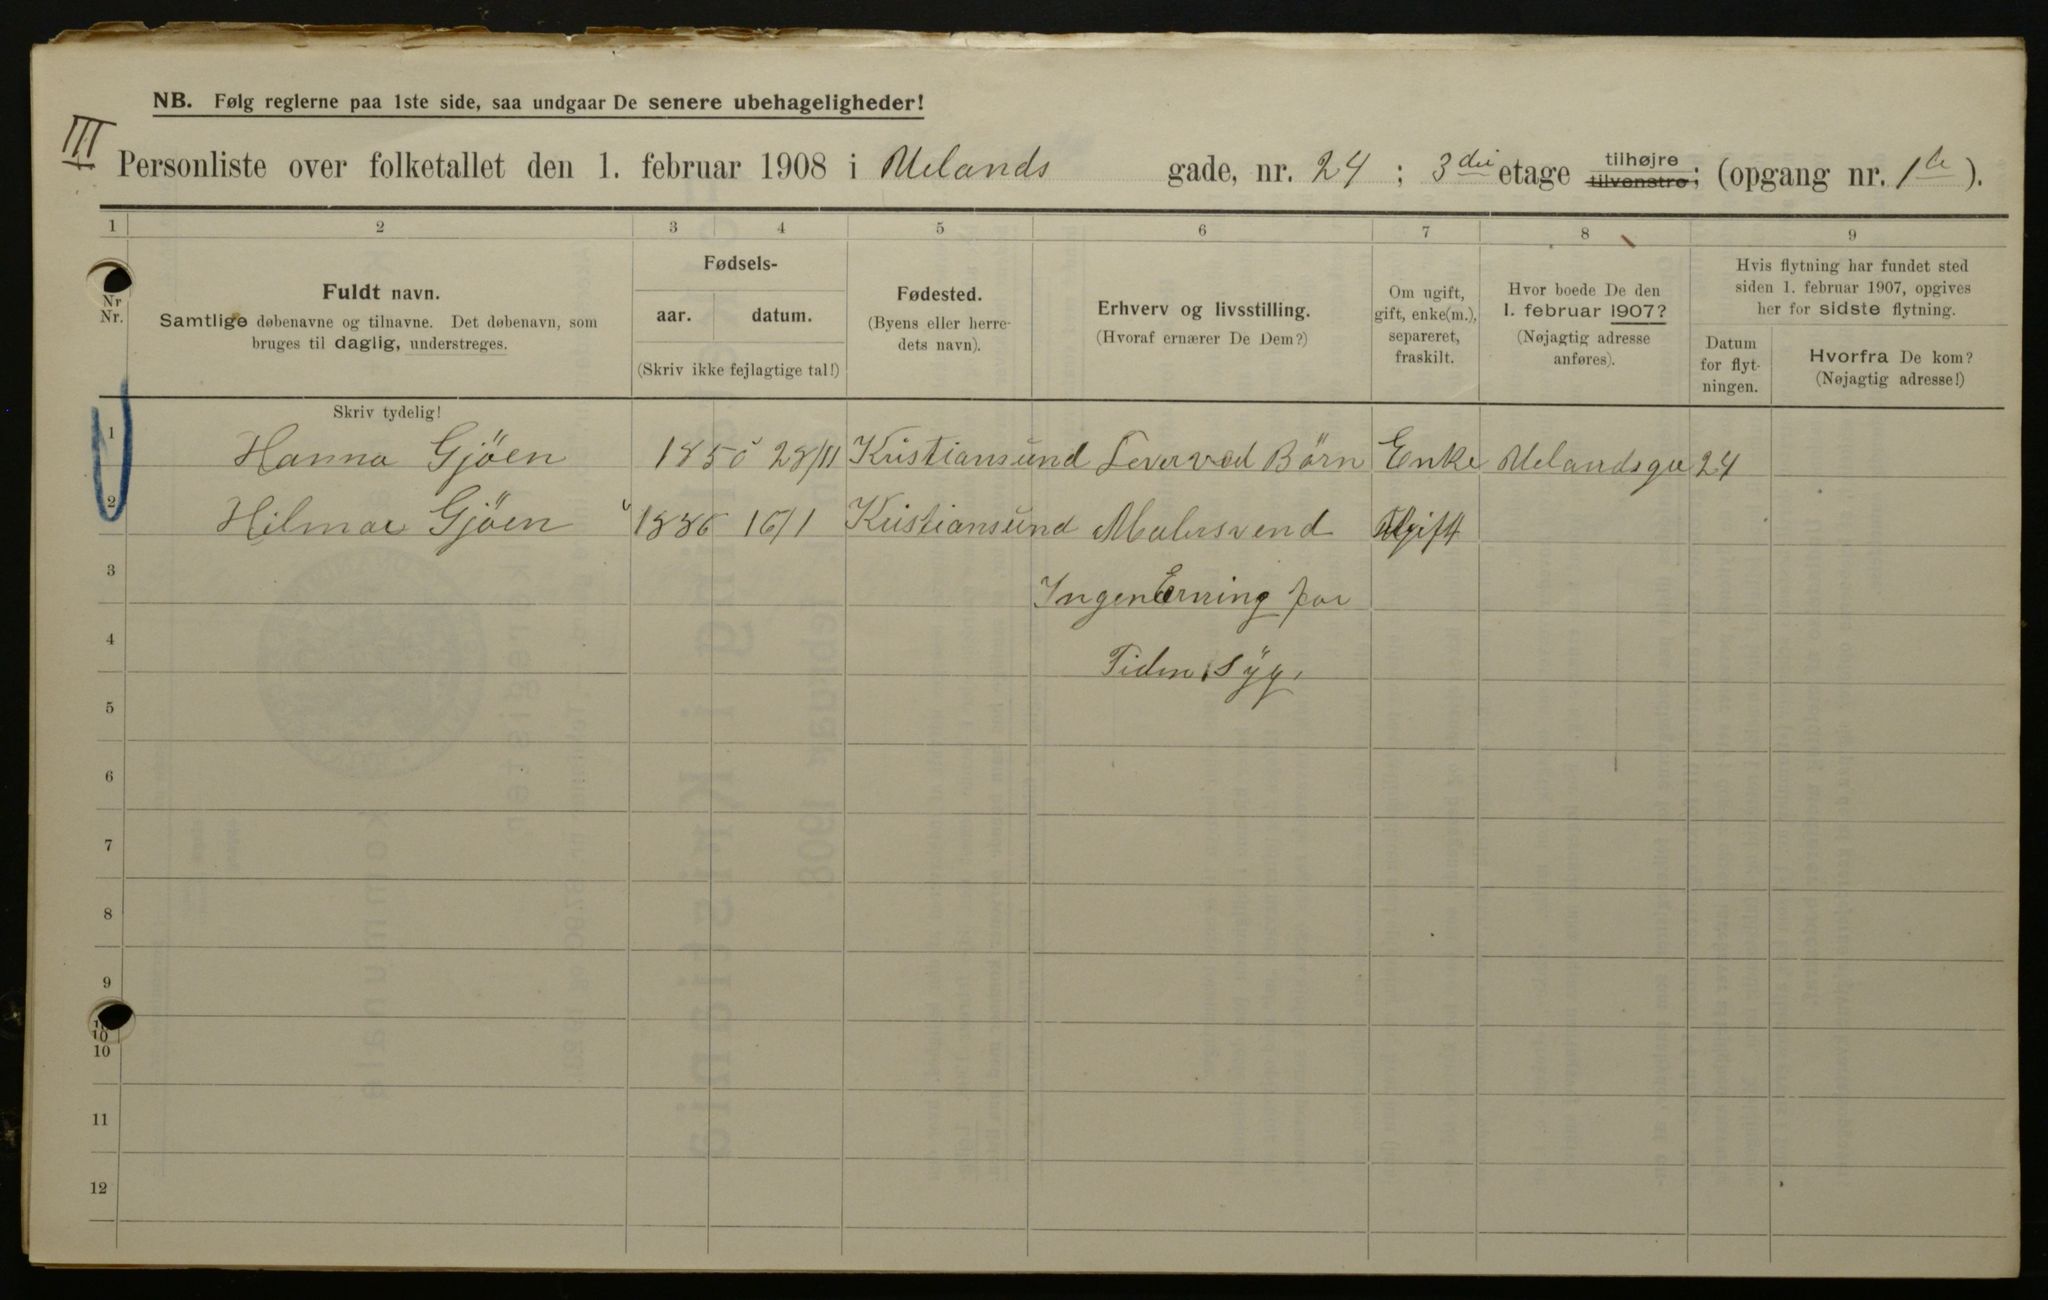 NB. Følg reglerne paa 1ste side, saa undgaar De senere ubehageligheder!
III
Personliste over folketallet den 1. februar 1908 i Uelands gade, nr. 24 ; 3die etage tilhøjre tilvenstre; (opgang nr. 1te ).
1 2 3 4 5 6 7 8 9
Nr
Nr.
Fuldt navn.
Samtlige døbenavne og tilnavne. Det døbenavn, som
bruges til daglig, understreges.
Skriv tydelig!
Fødsels-
aar. datum.
(Skriv ikke fejlagtige tal!)
Fødested.
(Byens eller herre-
dets navn).
Erhverv og livsstilling.
(Hvoraf ernærer De Dem?)
Om ugift,
gift, enke(m.),
separeret,
fraskilt.
Hvor boede De den
1. februar 1907?
(Nøjagtig adresse
anføres).
Hvis flytning har fundet sted
siden 1. februar 1907, opgives
her for sidste flytning.
Datum
for flyt-
ningen.
Hvorfra De kom?
(Nøjagtig adresse!)
1 Hanna Gjöen 1850 28/11 Kristiansund Lever ved Börn Enke Uelandsgu 24
2 Hilmar Gjöen 1886 16/1 Kristiansund Malersvend Ugift
3 Ingen Erning for
4 Tiden Syg.
5
6
7
8
9
10
10
10
11
12